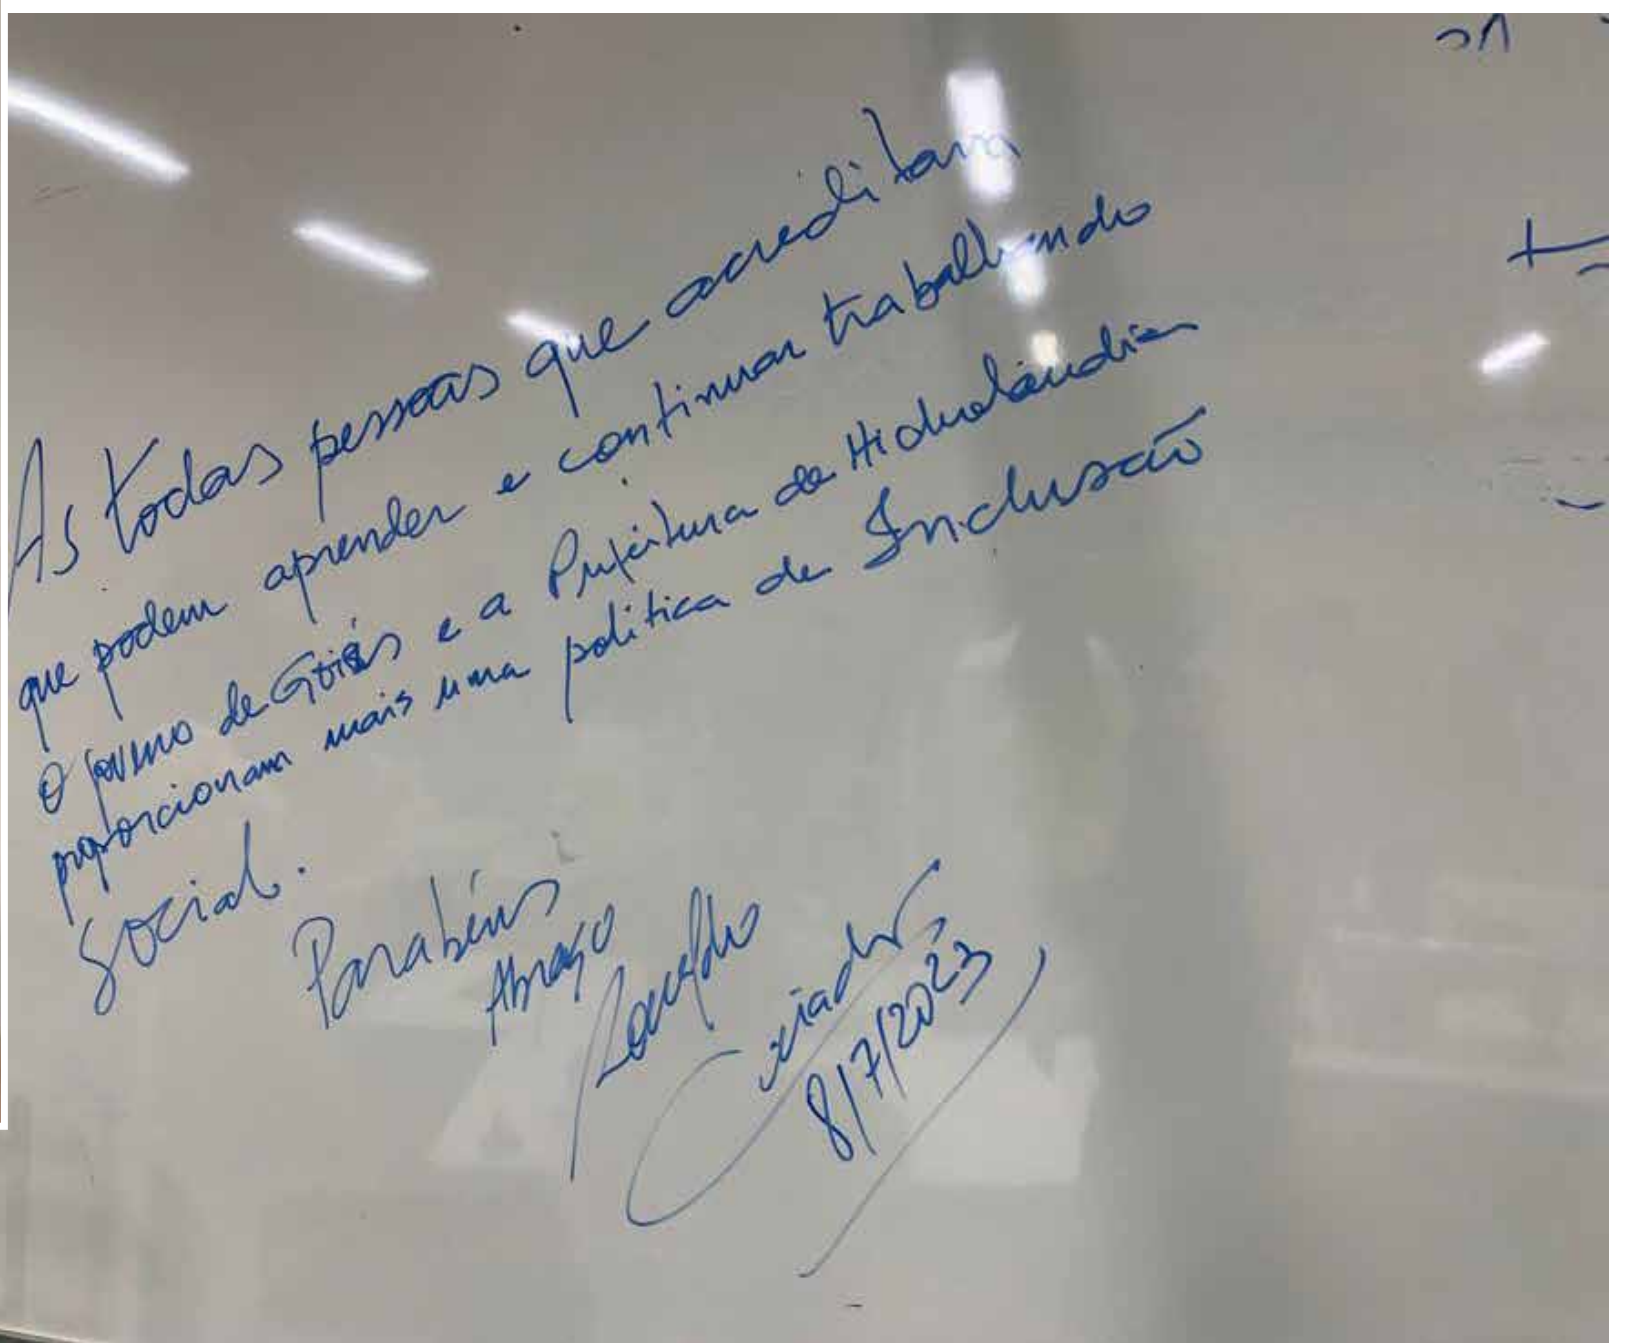 As todas pessoas que acreditam
que podem aprender e continuar trabalhando
O governo de Goiás e a Prefeitura de Hidrolândia
proporcionam mais uma política de Inclusão
Social.
Parabéns
Abraço
Ronaldo
Caiado
8/7/2023